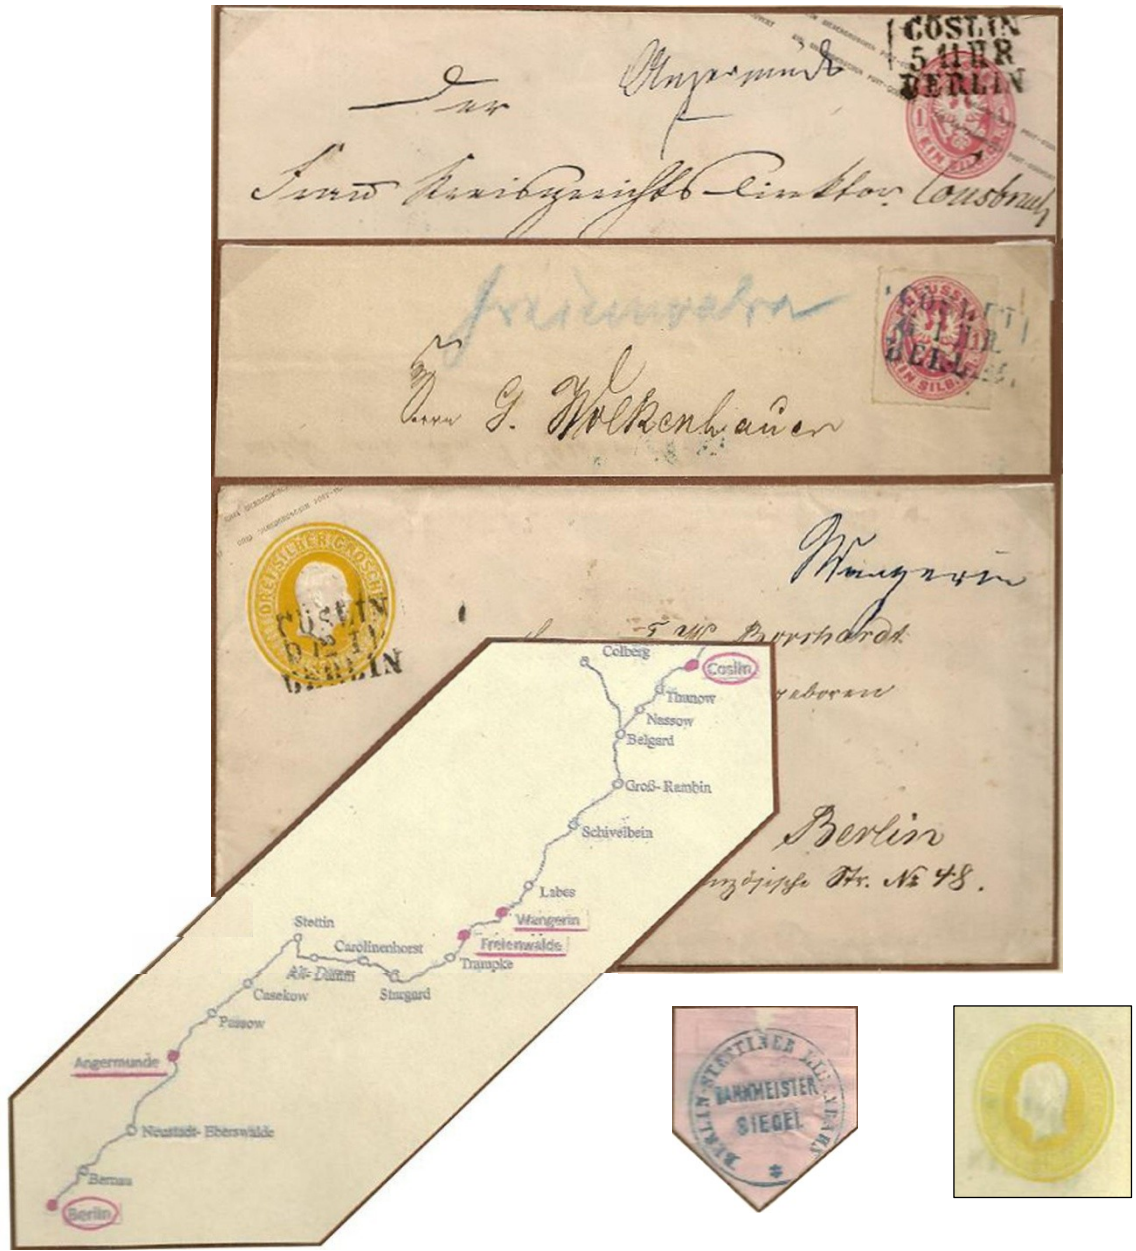 CÖSLIN
5 11 II R
BERLIN
Angermünde
Der
Frau Kreisgerichts-Direktor Consbruch
1 1
EIN SILB. GR.
freienwalde
PREUSSEN
BERLIN
EIN SILB.
Herrn G. Wolkenhauer
DREI SILBER GROSCHEN
CÖSLIN
BERLIN
Wangerin
Borchardt
geboren
Berlin
Str. № 48.
Colberg
Coslin
Thanow
Nassow
Belgard
Groß-Rambin
Schivelbein
Labes
Wangerin
Freienwalde
Trampke
Stettin
Carolinenhorst
Alt-Damm
Stargard
Casekow
Passow
Angermunde
Neustadt-Eberswalde
Bernau
Berlin
BERLIN-STETTINER EISENBAHN
BAHNMEISTER
SIEGEL